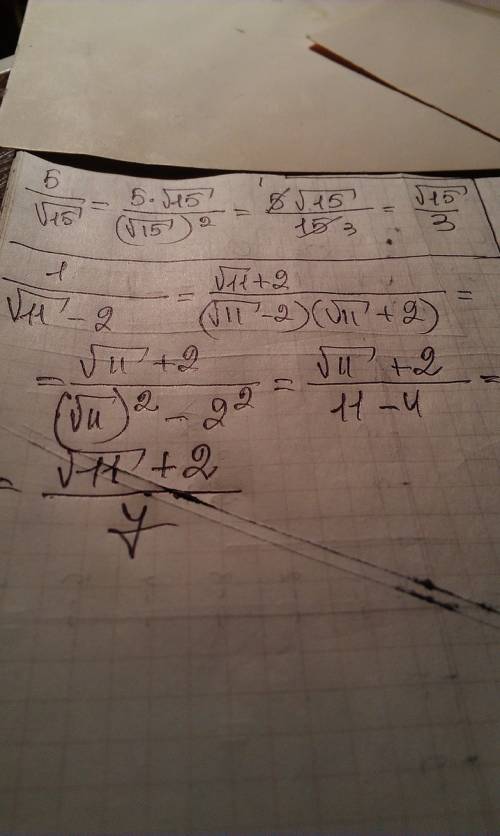 5/√15 = 5·√15/(√15)² = 5√15/15 3 = √15/3
1/(√11 - 2) = (√11 + 2)/((√11 - 2)(√11 + 2)) =
= (√11 + 2)/((√11)² - 2²) = (√11 + 2)/(11 - 4) =
= (√11 + 2)/7